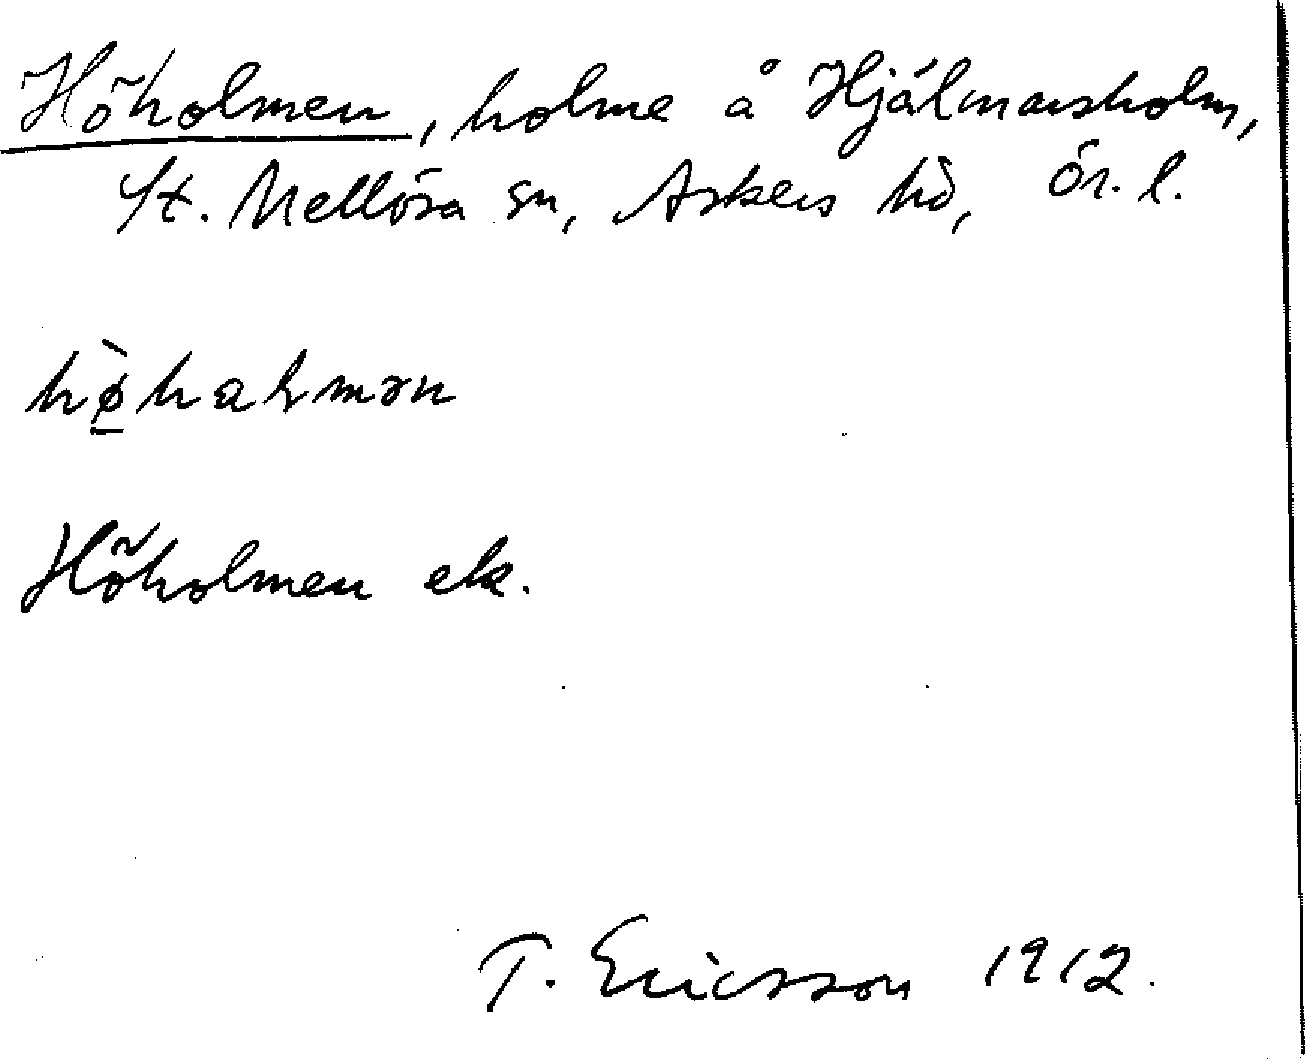 Höholmen, holme å Hjälmarsholm,
St. Mellösa sn, Askers hd, Ör. l.
hø̠̀haɫmən
Höholmen ek.
T. Ericsson 1912.